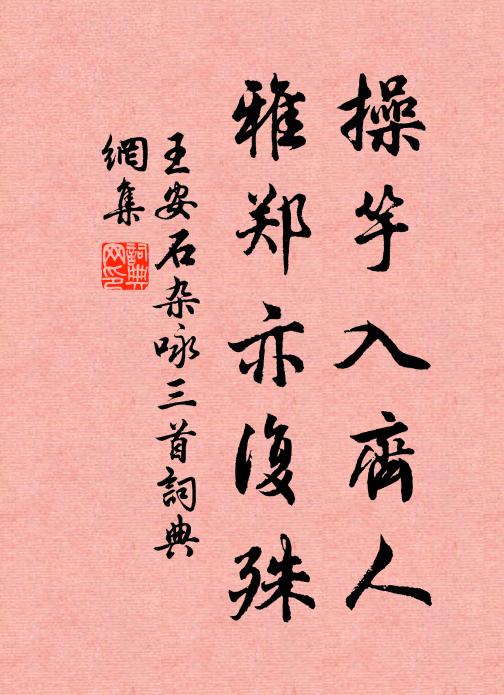 操竽入齊人
雅郑亦復殊
王安石杂咏三首詞典
網集
詞典
网印